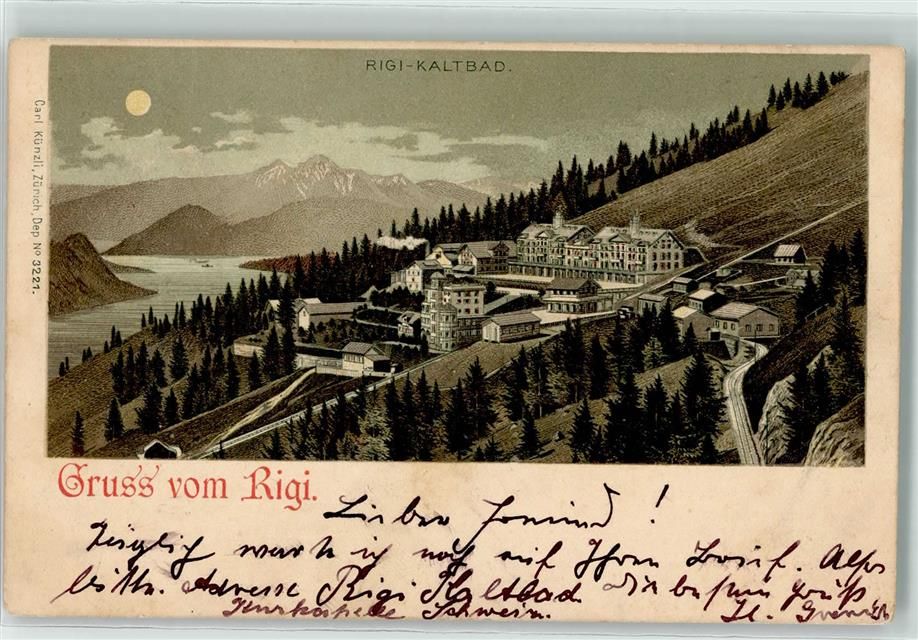 RIGI-KALTBAD.
Carl Künzli, Zürich, Dep No 3221.
Gruss vom Rigi.
Lieber Freund!
Täglich wart ich noch auf Ihren Brief. Also
bitte. Adresse Rigi Kaltbad Die besten Grüße
Kurkapelle Schweiz.